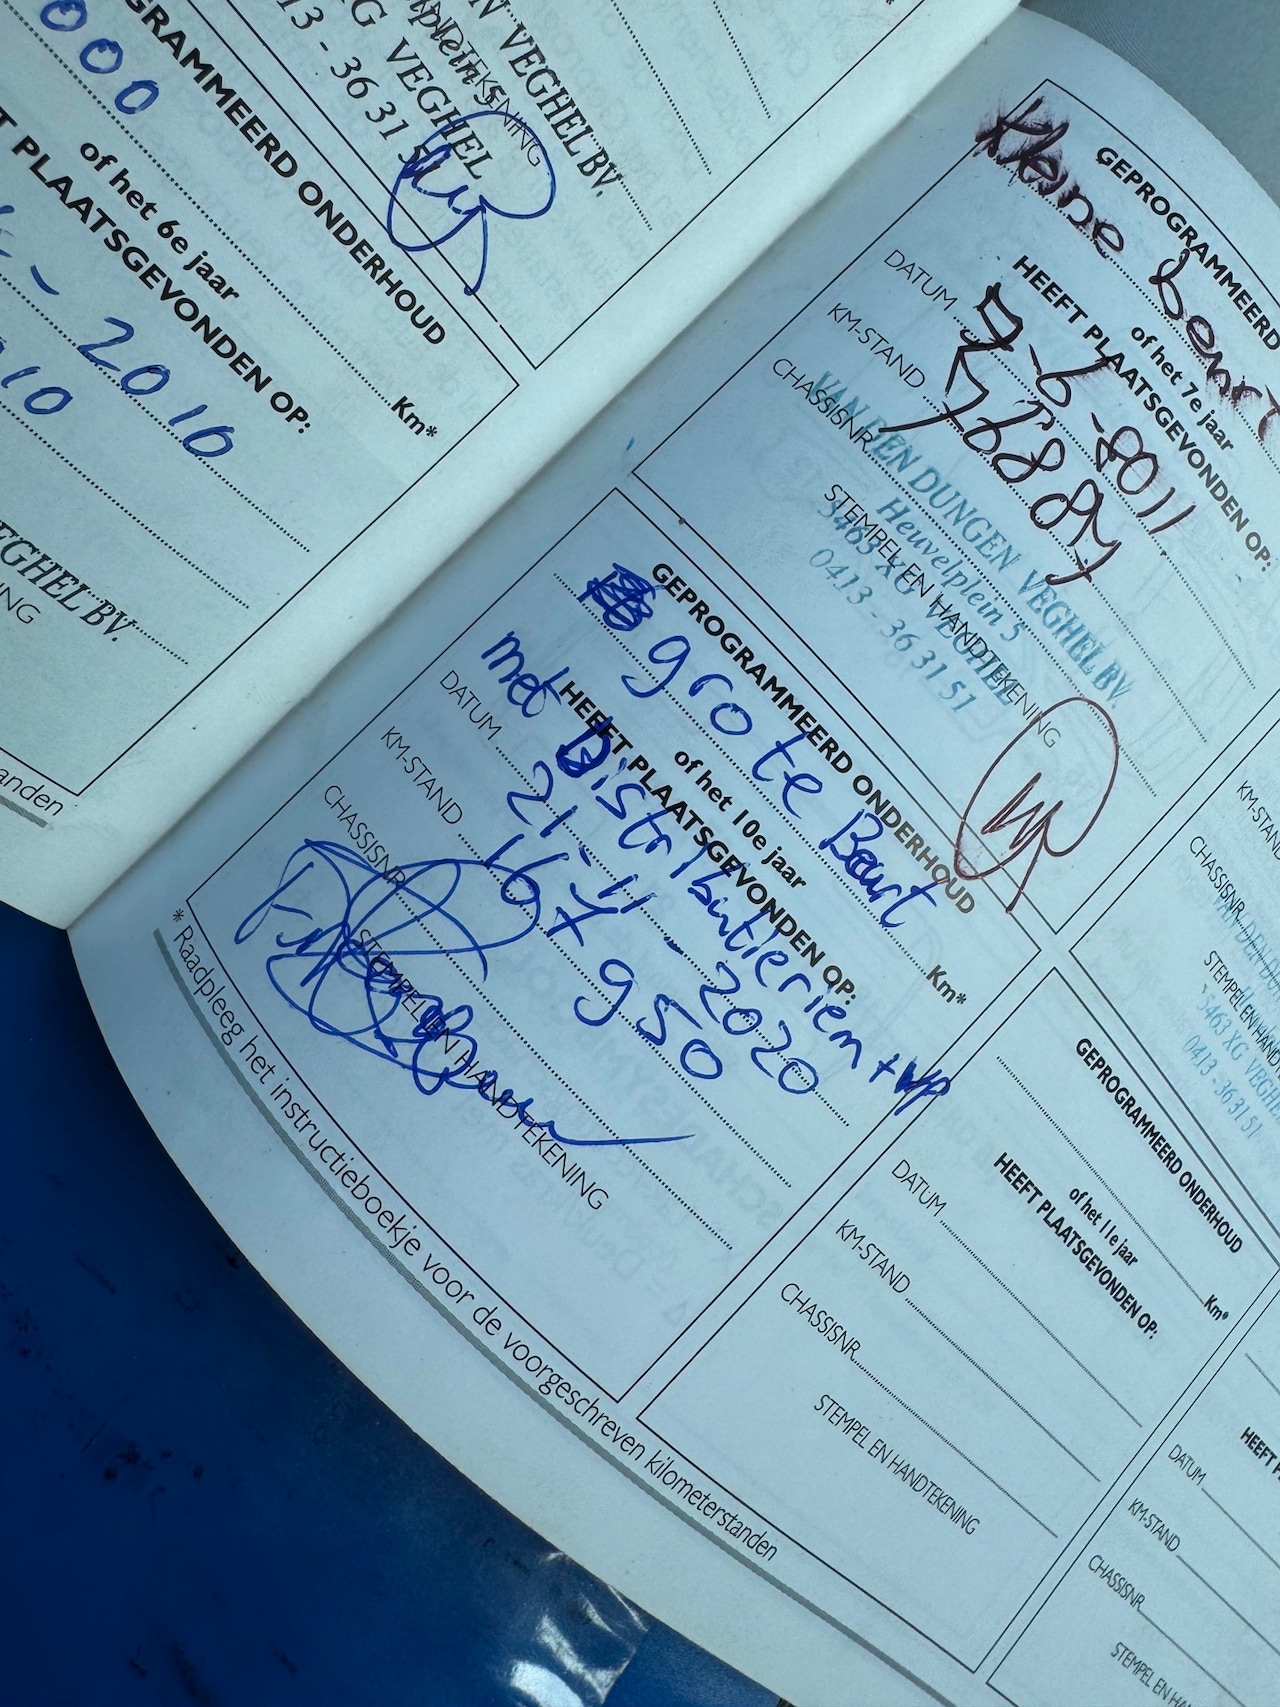 N VEGHEL BV
plein 5
G VEGHEL
13 - 36 31 5
TEKENING
000
GRAMMEERD ONDERHOUD
of het 6e jaar
Km*
T PLAATSGEVONDEN OP:
- 2010
10
EGHEL BV.
NING
anden
Kleine beurt
GEPROGRAMMEERD
of het 7e jaar
HEEFT PLAATSGEVONDEN OP:
DATUM 7-6-2011
KM-STAND 76889
CHASSISNR.
VAN DEN DUNGEN VEGHEL BV.
Heuvelplein 5
5463 XG VEGHEL
0413 - 36 31 51
STEMPEL EN HANDTEKENING
GEPROGRAMMEERD ONDERHOUD
grote Beurt
Km*
of het 10e jaar
HEEFT PLAATSGEVONDEN OP:
met Distributieriem + WP
DATUM 21-11-2020
KM-STAND 167950
CHASSISNR
STEMPEL EN HANDTEKENING
KM-STAND
CHASSISNR.
VAN DEN DUN
STEMPEL EN HANDT
5463 XG VEGHE
0413 - 36 31 51
GEPROGRAMMEERD ONDERHOUD
Km*
of het 11e jaar
HEEFT PLAATSGEVONDEN OP:
DATUM
KM-STAND
CHASSISNR.
STEMPEL EN HANDTEKENING
HEEFT P
DATUM
KM-STAND
CHASSISNR.
STEMPEL EN HAN
* Raadpleeg het instructieboekje voor de voorgeschreven kilometerstanden